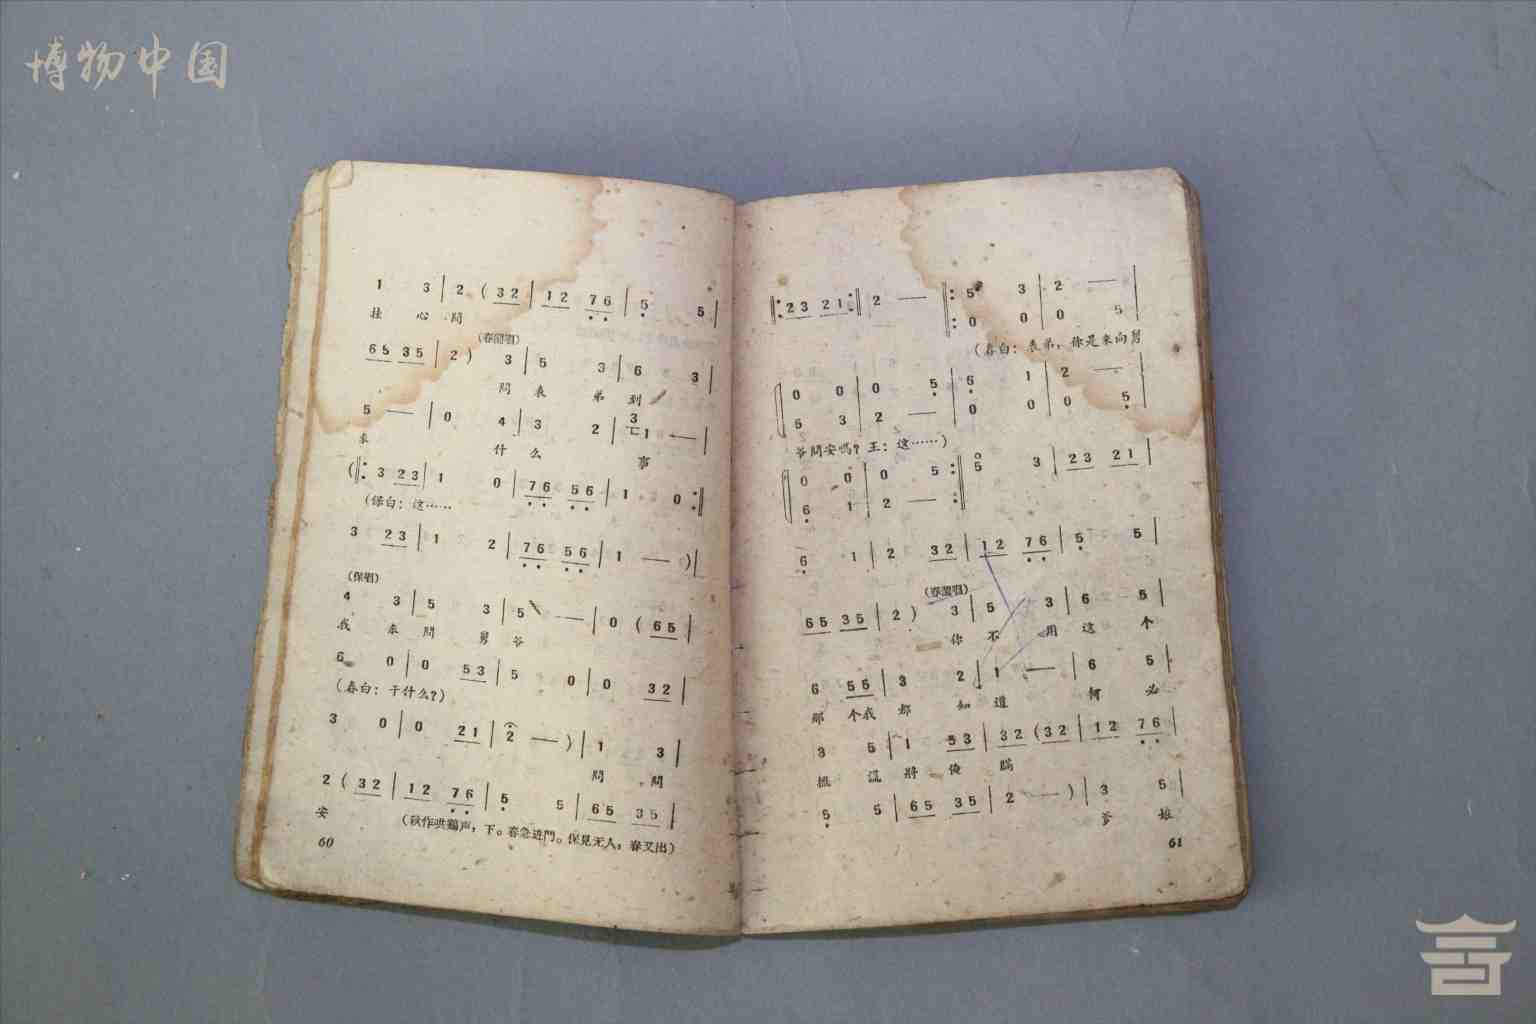 博物中国
1 3 | 2 ( 3 2 | 1 2 7 6 | 5 5 |
挂 心 間
(春蘭唱)
6 5 3 5 | 2 ) 3 | 5 3 | 6 3 |
問 表 弟 到
5 — | 0 4 | 3 2 | 3 1 — |
来 什 么 事
(‖: 3 2 3 | 1 0 | 7 6 5 6 | 1 0 :‖
(保白：这……
3 2 3 | 1 2 | 7 6 5 6 | 1 — ) |
(保唱)
4 3 | 5 3 | 5 — | 0 ( 6 5 |
我 来 問 舅 爷
6 0 | 0 5 3 | 5 0 | 0 3 2 |
(春白：干什么？)
3 0 | 0 2 1 | 2 — ) | 1 3 |
問 問
2 ( 3 2 | 1 2 7 6 | 5 5 | 6 5 3 5 |
安 (秋作哄鷄声，下。春急进門。保見无人，春又出)
60
‖: 2 3 2 1 :‖ 2 — ‖: 5 3 | 2 — |
0 0 | 0 5
(春白：表弟，你是来向舅
0 0 | 0 5 | 6 1 | 2 — |
5 3 | 2 — | 0 0 | 0 5
爷問安嗎？王：这……)
0 0 | 0 5 :‖ 5 3 | 2 3 2 1 |
6 1 | 2 —
6 1 | 2 3 2 | 1 2 7 6 | 5 5 |
(春蘭唱)
6 5 3 5 | 2 ) 3 | 5 3 | 6 5 |
你 不 用 这 个
6 5 5 | 3 2 | 1 — | 6 5 |
那 个我 都 知 道 何 必
3 5 | 1 5 3 | 3 2 ( 3 2 | 1 2 7 6 |
謊 將 俺 瞞
5 5 | 6 5 3 5 | 2 — ) | 3 5 |
爹 娘
61